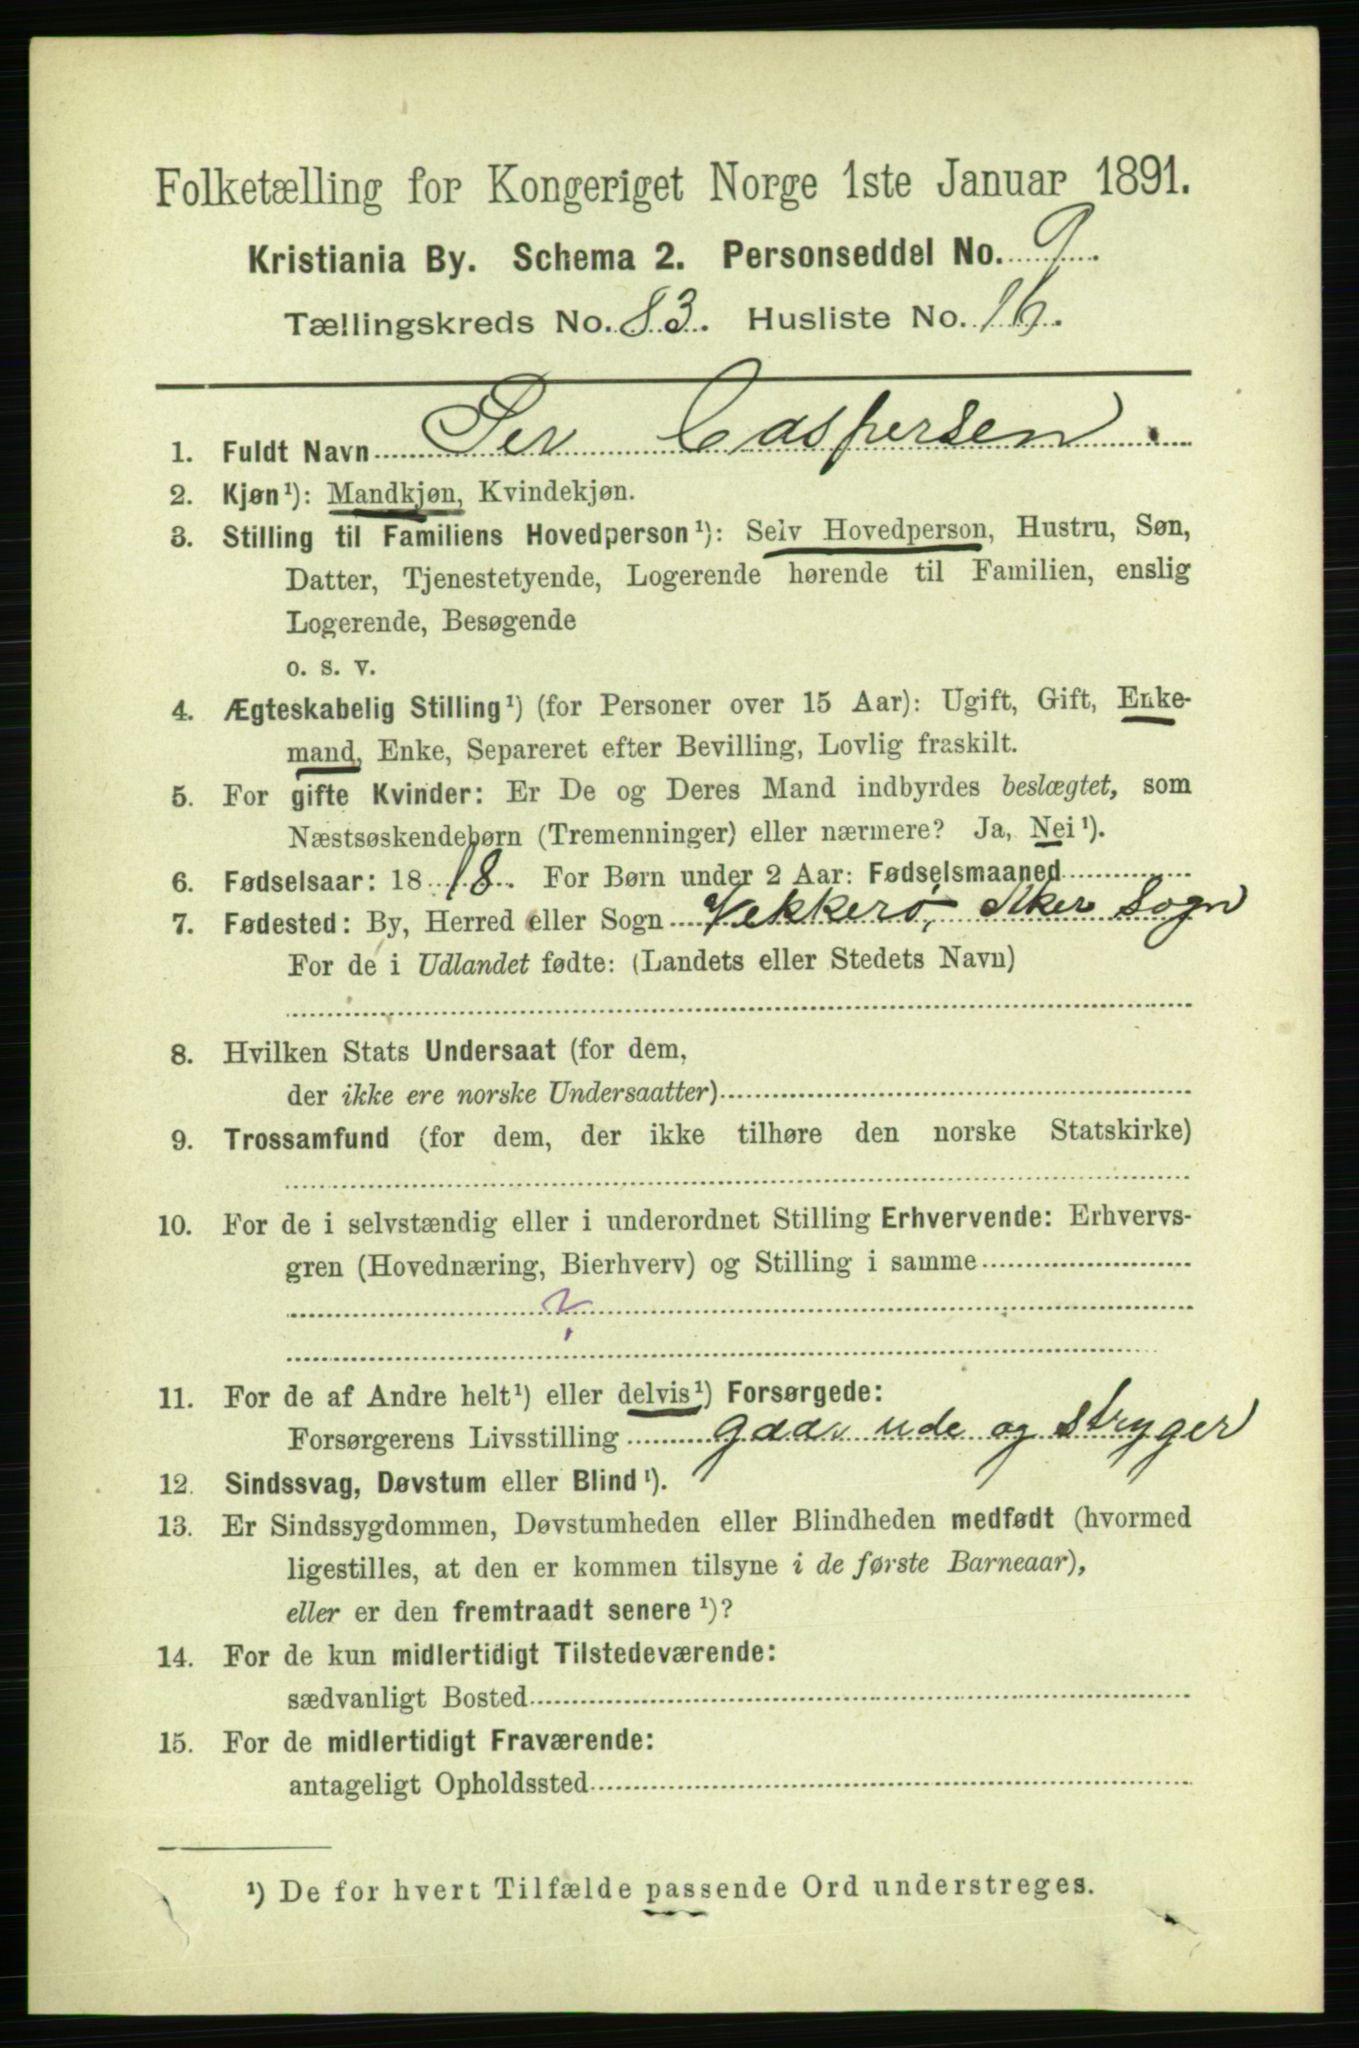 Folketælling for Kongeriget Norge 1ste Januar 1891.
Kristiania By. Schema 2. Personseddel No. 9.
Tællingskreds No. 83. Husliste No. 16.
1. Fuldt Navn Per Caspersen.
2. Kjøn¹): Mandkjøn, Kvindekjøn.
3. Stilling til Familiens Hovedperson¹): Selv Hovedperson, Hustru, Søn,
Datter, Tjenestetyende, Logerende hørende til Familien, enslig
Logerende, Besøgende
o. s. v.
4. Ægteskabelig Stilling¹) (for Personer over 15 Aar): Ugift, Gift, Enke-
mand, Enke, Separeret efter Bevilling, Lovlig fraskilt.
5. For gifte Kvinder: Er De og Deres Mand indbyrdes beslægtet, som
Næstsøskendebørn (Tremenninger) eller nærmere? Ja, Nei¹).
6. Fødselsaar: 1818. For Børn under 2 Aar: Fødselsmaaned
7. Fødested: By, Herred eller Sogn Vekkerö, Aker Sogn
For de i Udlandet fødte: (Landets eller Stedets Navn)
8. Hvilken Stats Undersaat (for dem,
der ikke ere norske Undersaatter)
9. Trossamfund (for dem, der ikke tilhøre den norske Statskirke)
10. For de i selvstændig eller i underordnet Stilling Erhvervende: Erhvervs-
gren (Hovednæring, Bierhverv) og Stilling i samme
?
11. For de af Andre helt¹) eller delvis¹) Forsørgede:
Forsørgerens Livsstilling gaar ude og stryger
12. Sindssvag, Døvstum eller Blind¹).
13. Er Sindssygdommen, Døvstumheden eller Blindheden medfødt (hvormed
ligestilles, at den er kommen tilsyne i de første Barneaar),
eller er den fremtraadt senere¹)?
14. For de kun midlertidigt Tilstedeværende:
sædvanligt Bosted
15. For de midlertidigt Fraværende:
antageligt Opholdssted
¹) De for hvert Tilfælde passende Ord understreges.